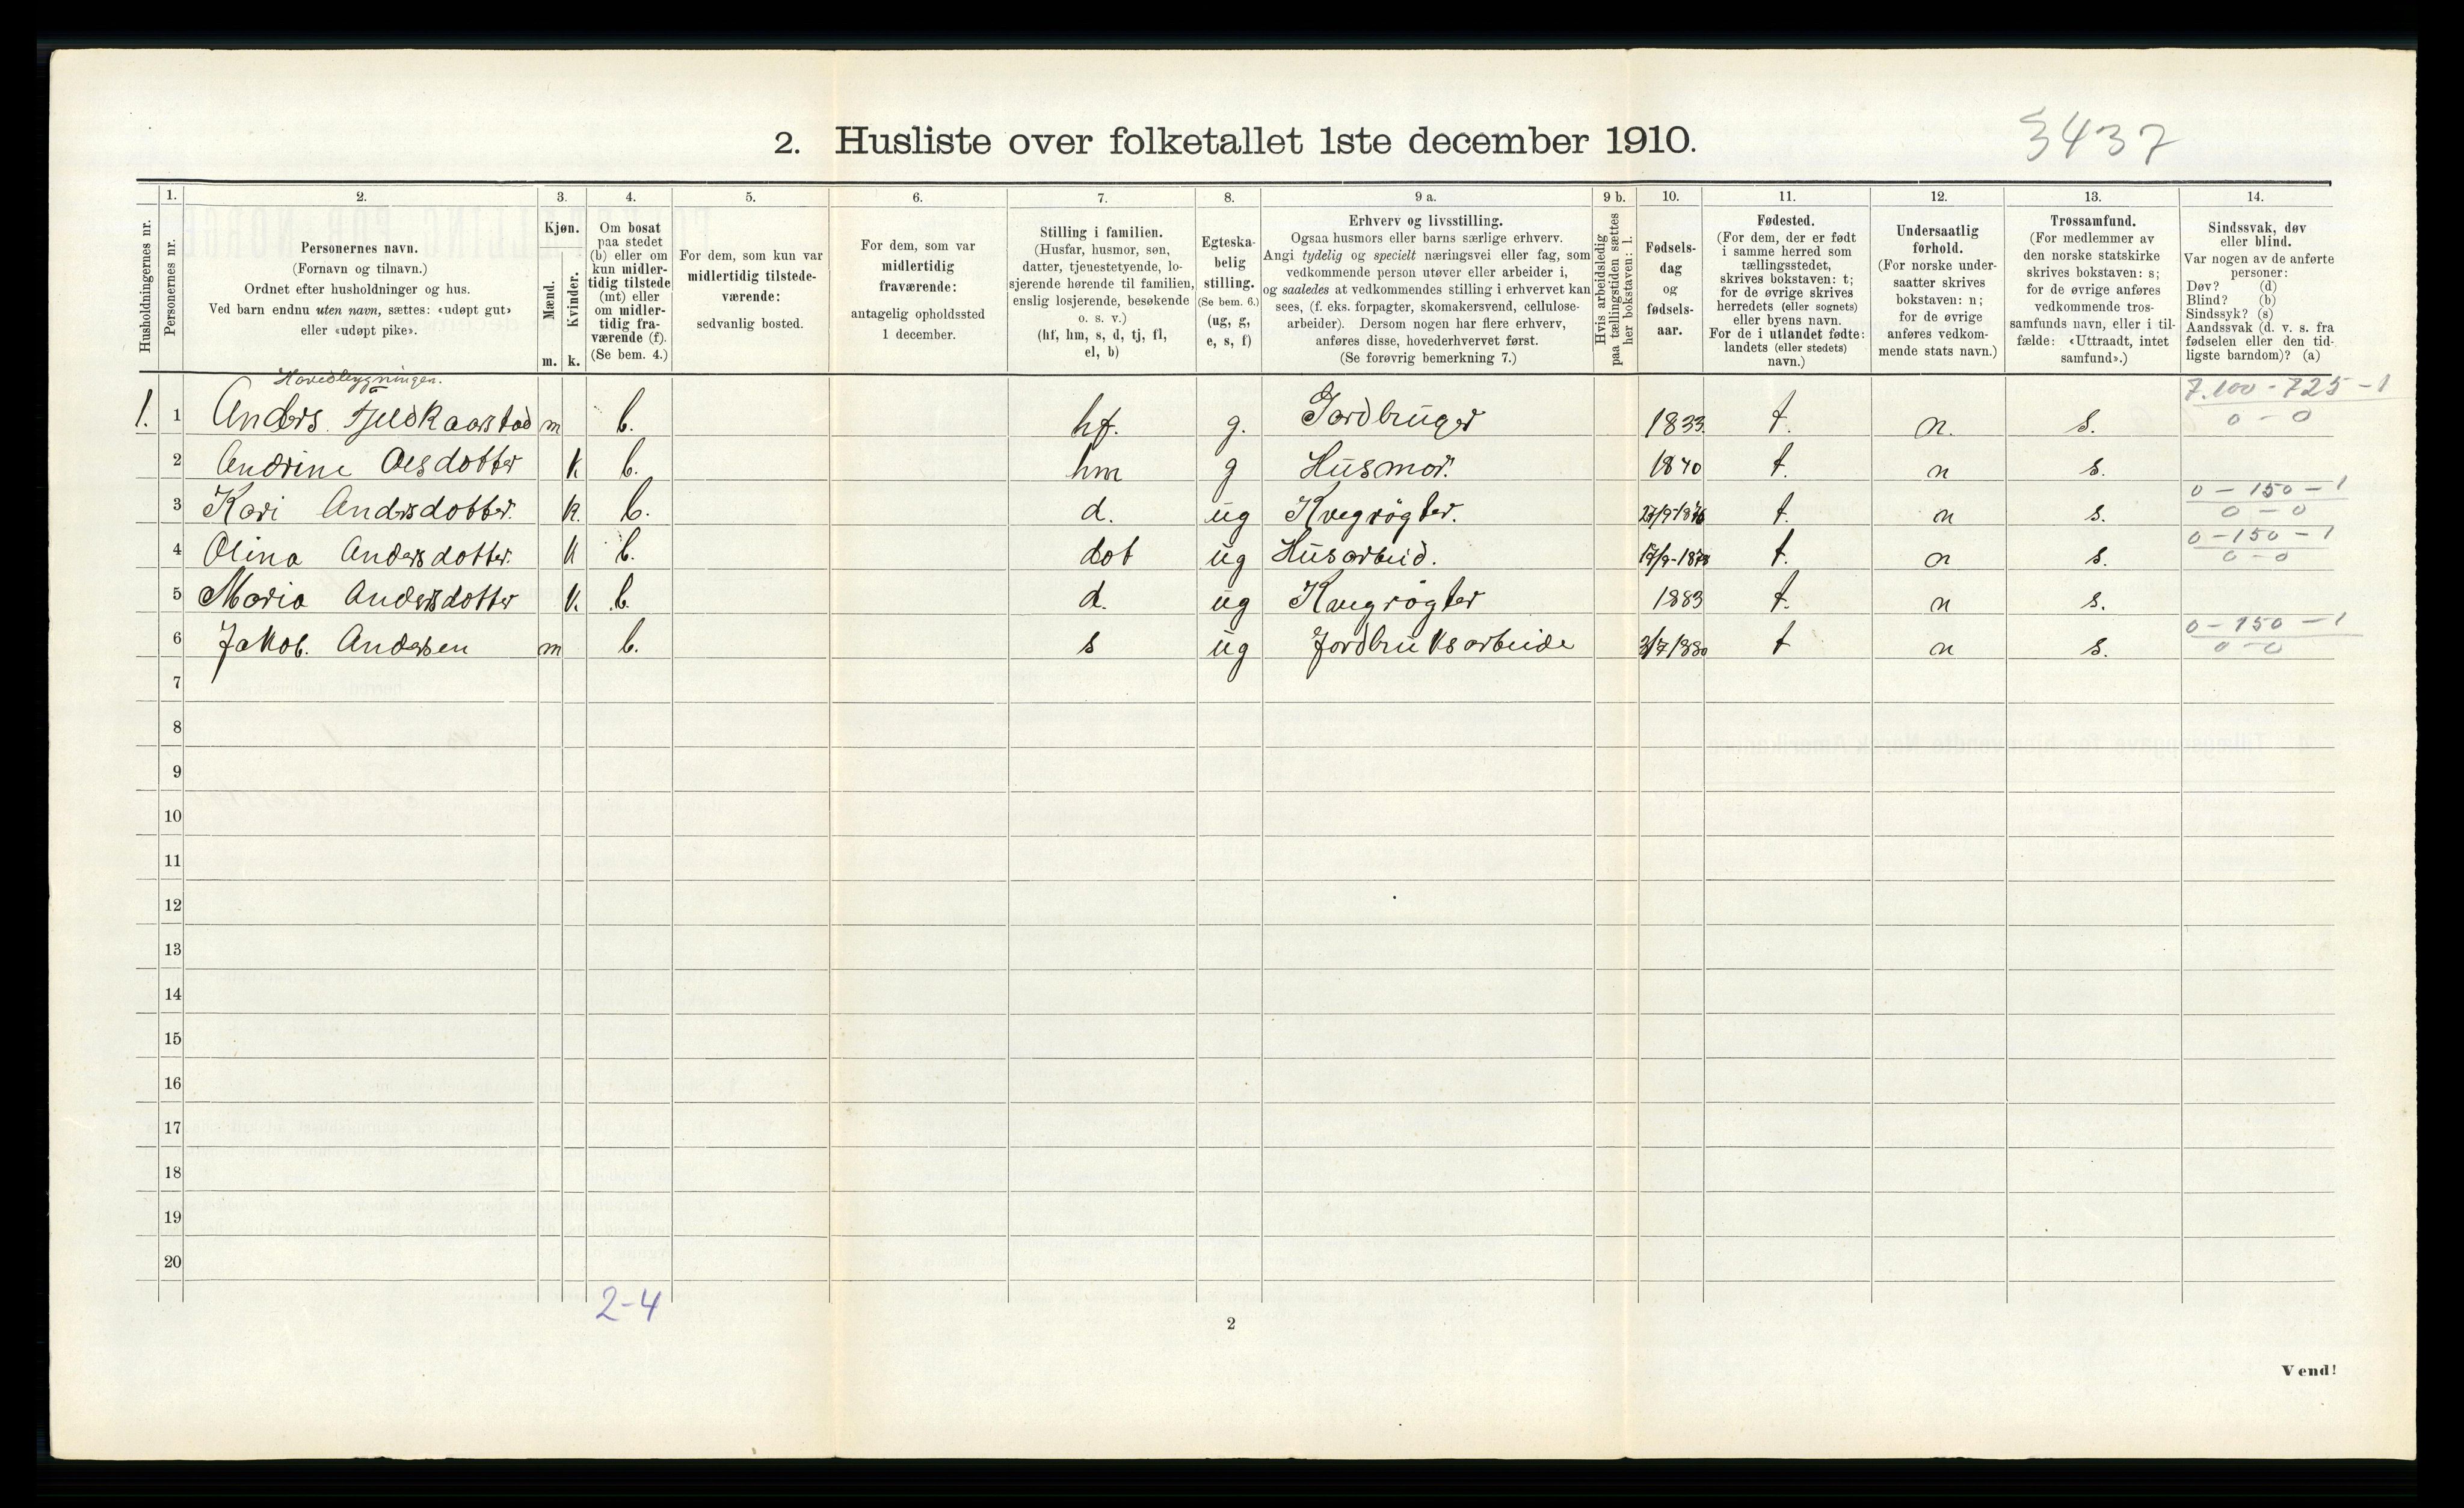 2. Husliste over folketallet 1ste december 1910.
3437
1. 2. 3. 4. 5. 6. 7. 8. 9 a. 9 b. 10. 11. 12. 13. 14.
Husholdningernes nr.
Personernes nr.
Personernes navn.
(Fornavn og tilnavn.)
Ordnet efter husholdninger og hus.
Ved barn endnu uten navn, sættes: «udøpt gut»
eller «udøpt pike».
Kjøn.
Mænd.
Kvinder.
m. k.
Om bosat
paa stedet
(b) eller om
kun midler-
tidig tilstede
(mt) eller
om midler-
tidig fra-
værende (f).
(Se bem. 4.)
For dem, som kun var
midlertidig tilstede-
værende:
sedvanlig bosted.
For dem, som var
midlertidig
fraværende:
antagelig opholdssted
1 december.
Stilling i familien.
(Husfar, husmor, søn,
datter, tjenestetyende, lo-
sjerende hørende til familien,
enslig losjerende, besøkende
o. s. v.)
(hf, hm, s, d, tj, fl,
el, b)
Egteska-
belig
stilling.
(Se bem. 6.)
(ug, g,
e, s, f)
Erhverv og livsstilling.
Ogsaa husmors eller barns særlige erhverv.
Angi tydelig og specielt næringsvei eller fag, som
vedkommende person utøver eller arbeider i,
og saaledes at vedkommendes stilling i erhvervet kan
sees, (f. eks. forpagter, skomakersvend, cellulose-
arbeider). Dersom nogen har flere erhverv,
anføres disse, hovederhvervet først.
(Se forøvrig bemerkning 7.)
Hvis arbeidsledig
paa tællingstiden sættes
her bokstaven: l.
Fødsels-
dag
og
fødsels-
aar.
Fødested.
(For dem, der er født
i samme herred som
tællingsstedet,
skrives bokstaven: t;
for de øvrige skrives
herredets (eller sognets)
eller byens navn.
For de i utlandet fødte:
landets (eller stedets)
navn.)
Undersaatlig
forhold.
(For norske under-
saatter skrives
bokstaven: n;
for de øvrige
anføres vedkom-
mende stats navn.)
Trossamfund.
(For medlemmer av
den norske statskirke
skrives bokstaven: s;
for de øvrige anføres
vedkommende tros-
samfunds navn, eller i til-
fælde: «Uttraadt, intet
samfund».)
Sindssvak, døv
eller blind.
Var nogen av de anførte
personer:
Døv? (d)
Blind? (b)
Sindssyk? (s)
Aandssvak (d. v. s. fra
fødselen eller den tid-
ligste barndom)? (a)
Hovedbygningen.
7.100 - 725 - 1
1. 1 Anders Fjeldkaarstad m b. hf. g. Jordbruger 1833. t. n. s. 0 - 0
2 Andrine Olsdotter k b. hm g Husmor. 1840 t. n s.
0 - 150 - 1
3 Kari Andersdotter. k. b. d. ug Kvegrøgter. 27/9-1876 t. n s. 0 - 0
0 - 150 - 1
4 Olina Andersdotter. k b. dot ug Husarbeid. 17/9-1878 t. n s. 0 - 0
5 Maria Andersdotter k. b. d. ug Kvegrøgter 1883 t. n s.
0 - 150 - 1
6 Jakob. Andersen m b. s ug Jordbruksarbeide 3/7 1880 t n s. 0 - 0
7
8
9
10
11
12
13
14
15
16
17
18
19
20
2-4
2
Vend!